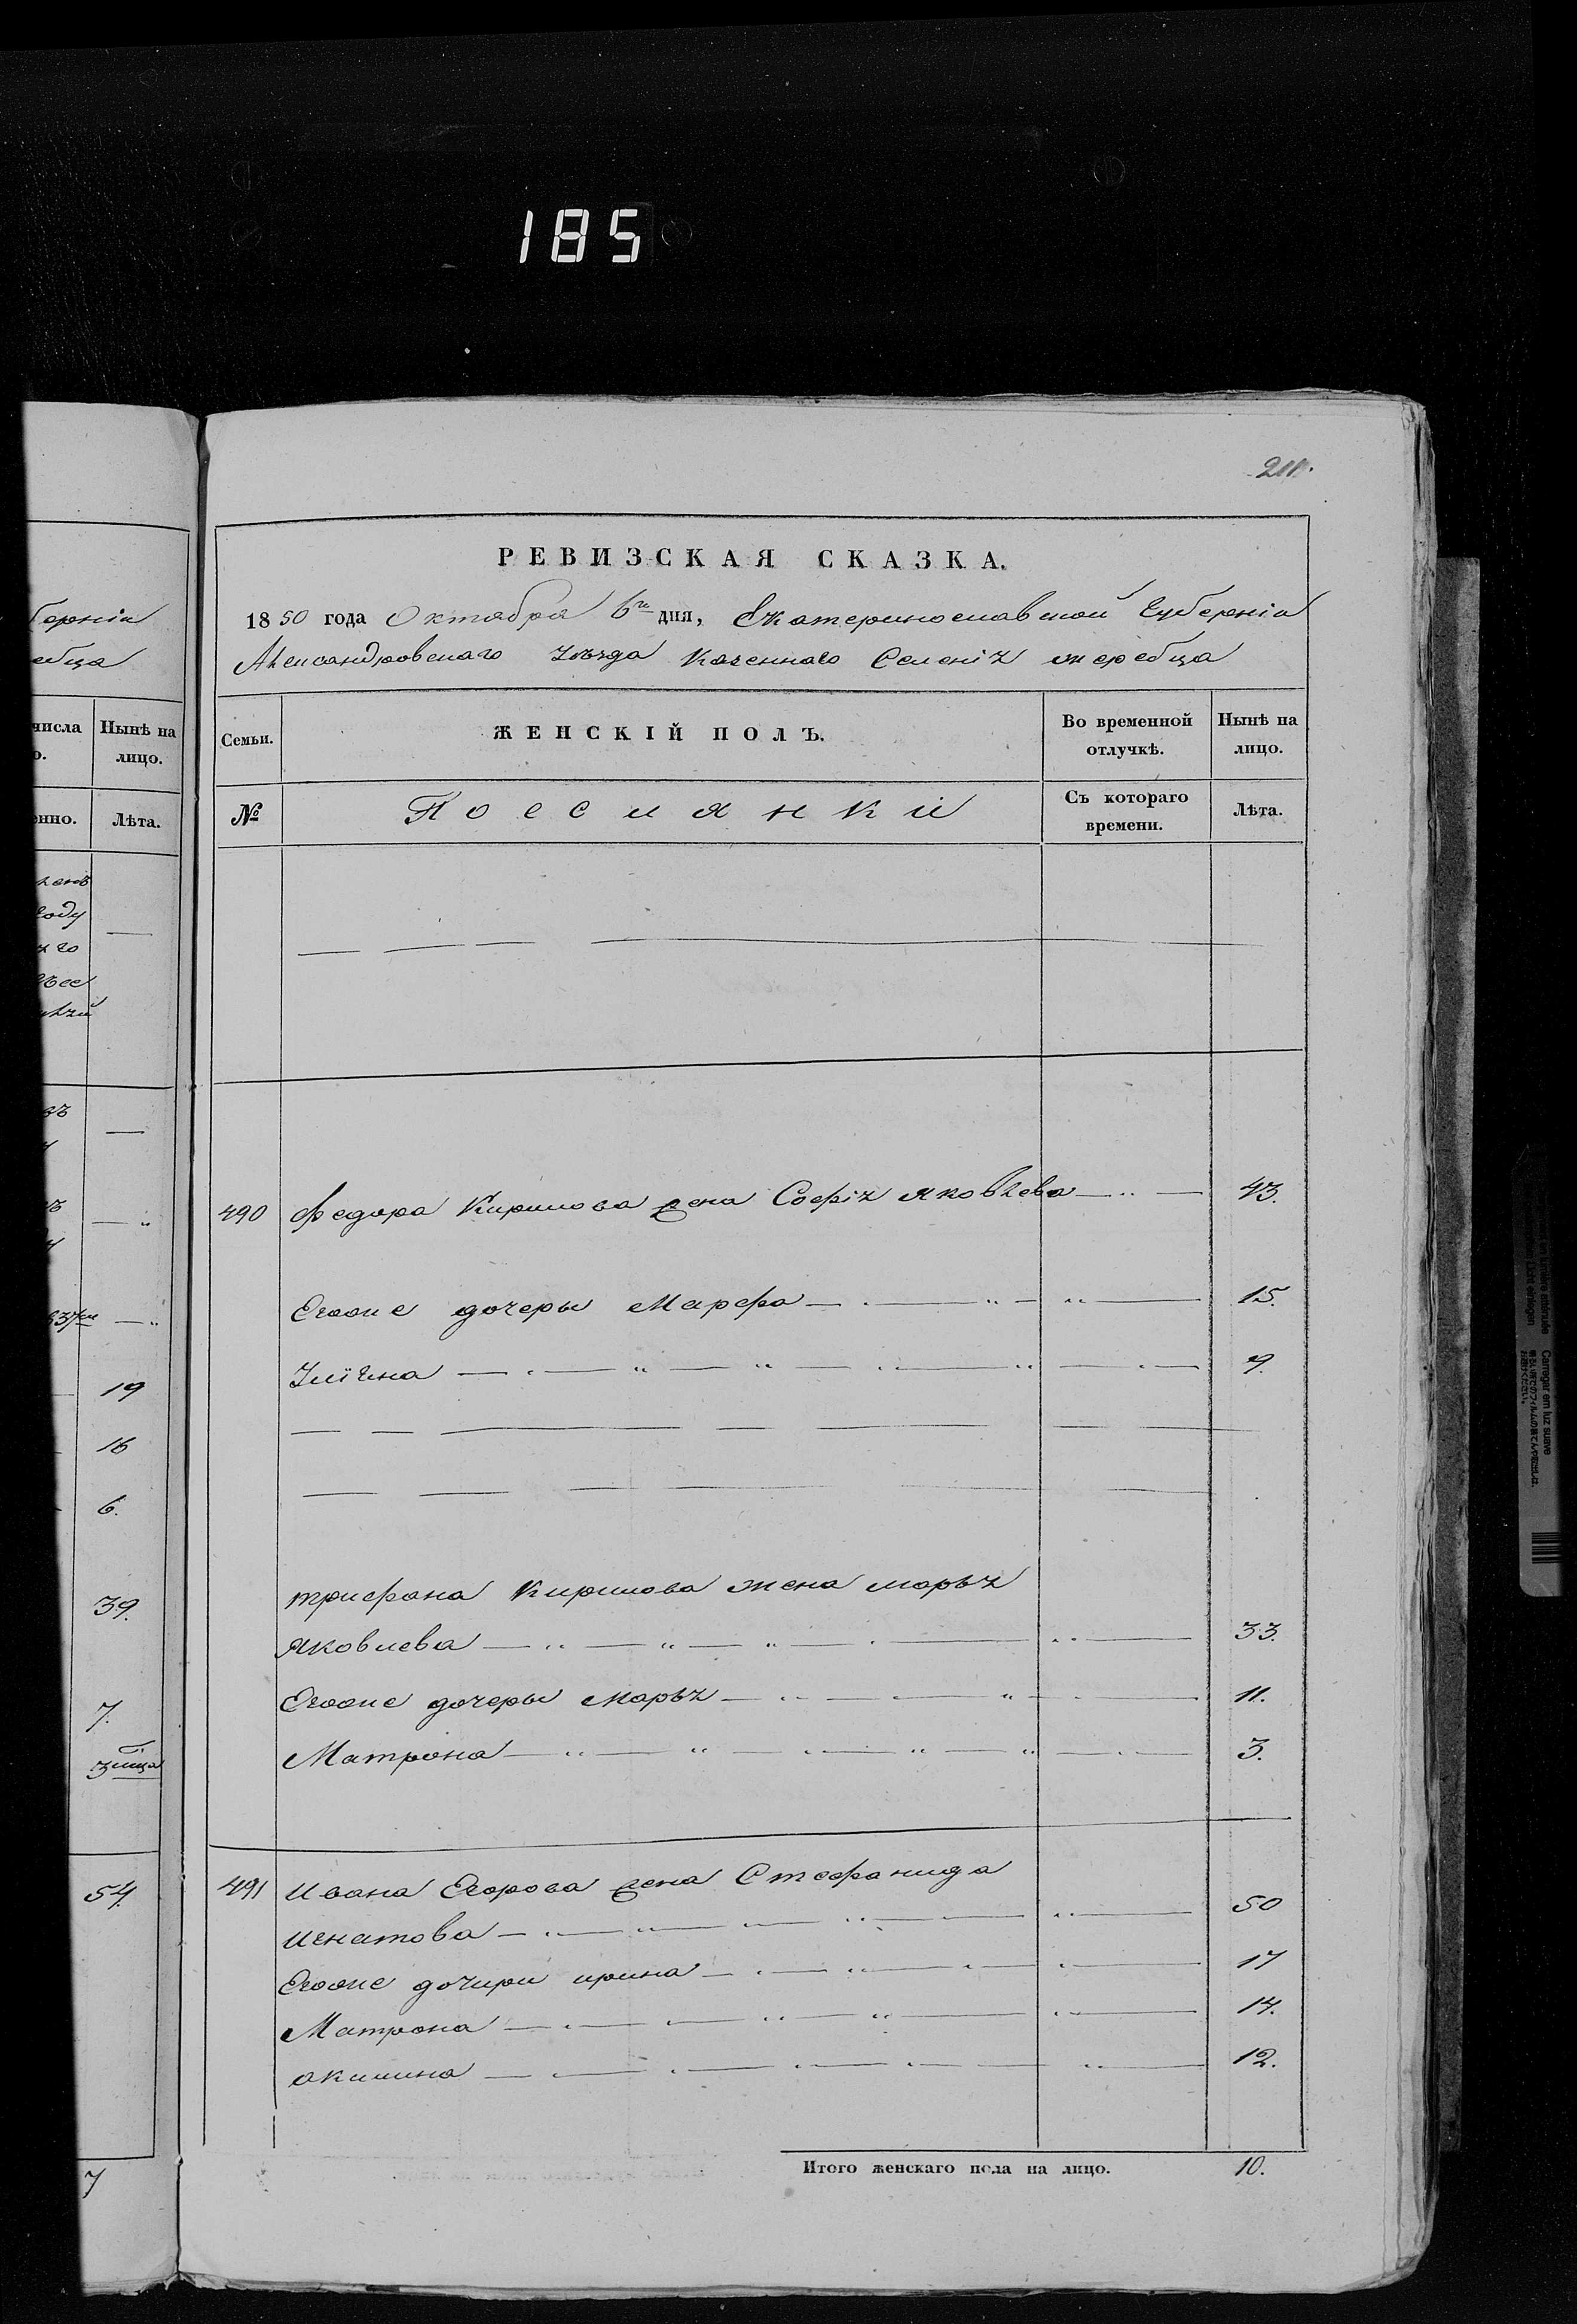 185
211.
РЕВИЗСКАЯ СКАЗКА.
1850 года Октября 6го дня, Екатеринославской Губерніи
Александровскаго уѣзда казеннаго Селенія жеребца
Семьи.
ЖЕНСКІЙ ПОЛЪ.
Во временной отлучкѣ.
Нынѣ на лицо.
№
Поселянки
Съ котораго времени.
Лѣта.
490 федора Кирилова жена Софія яковлева 43.
Егоже дочеры Марфа 15.
Уліяна 9.
трифона Кирилова жена марья
яковлева 33.
Егоже дочеры Марья 11.
Матрона 3.
491 Ивана Егорова жена Стефанида
игнатова 50
Егоже дочири ирина 17
Матрона 14.
акилина 12.
Итого женскаго пола на лицо. 10.
берніи
ебца
числа
Нынѣ на
лицо.
енно.
Лѣта.
году
19
16
6.
39.
7.
54.
7